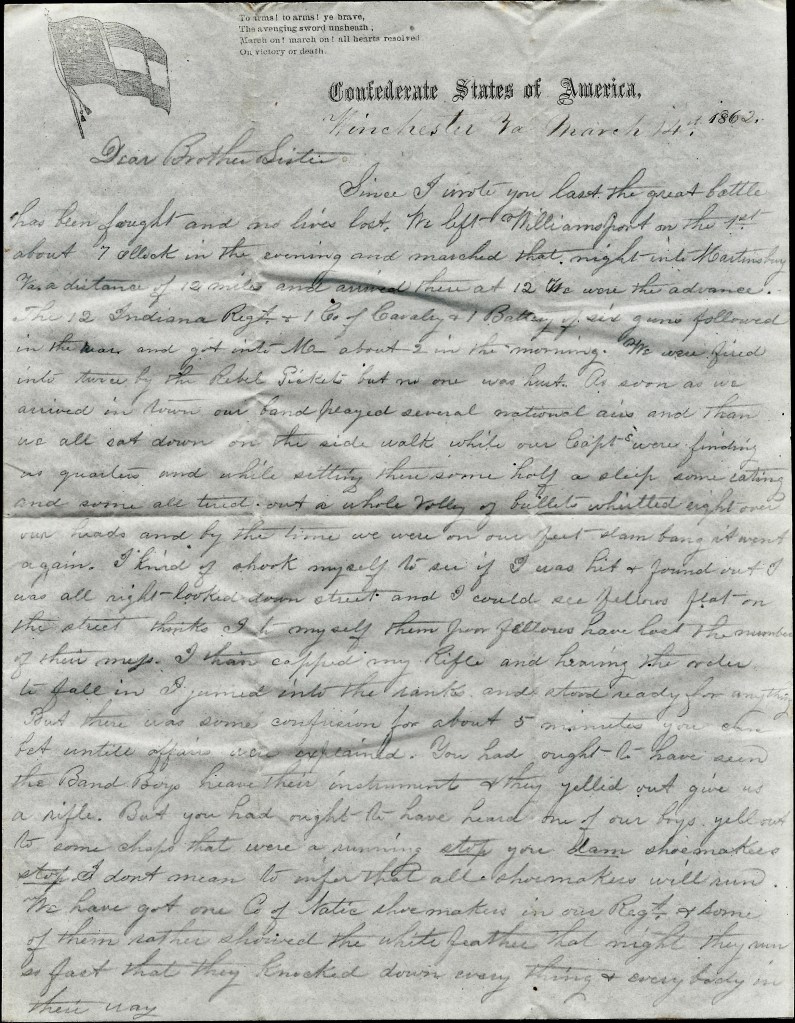 To arms! to arms! ye brave,
The avenging sword unsheath;
March on! march on! all hearts resolved
On victory or death.
Confederate States of America,
Winchester Va March 14th 1862.
Dear Brother Sister
Since I wrote you last the great battle
has been fought and no lives lost. We left Williamsport on the 1st
about 7 Oclock in the evening and marched that night into Martinsburg
Va. a distance of 12 miles and arrived there at 12 We were the advance.
The 12 Indiana Regt. & 1 Co of Cavalry & 1 Battery of six guns followed
in the rear and got into M about 2 in the morning. We were fired
into twice by the Rebel Pickets but no one was hurt. As soon as we
arrived in town our band played several national airs and than
we all sat down on the side walk while our Capts were finding
us quarters and while setting there some half a sleep some eating
and some all tired out a whole volley of bullets whistled right over
our heads and by the time we were on our feet slam bang it went
again. I kind of shook myself to see if I was hit & found out I
was all right looked down street and I could see fellows flat on
the street thinks I to myself them poor fellows have lost the number
of their mess. I than capped my Rifle and hearing the order
to fall in I jumed into the ranks and stood ready for any thing
But there was some confusion for about 5 minutes you can
bet untill affairs were explained. You had ought to have seen
the Band Boys heave their instrument & they yelled out give us
a rifle. But you had ought to have heard one of our boys yell out
to some chaps that were a running stop you dam shoemakers
stop I dont mean to infer that all shoemakers will run.
We have got one Co of Natic shoemakers in our Regt. & some
of them rather showed the white feather that night they run
so fast that they knocked down every thing & every body in
their way